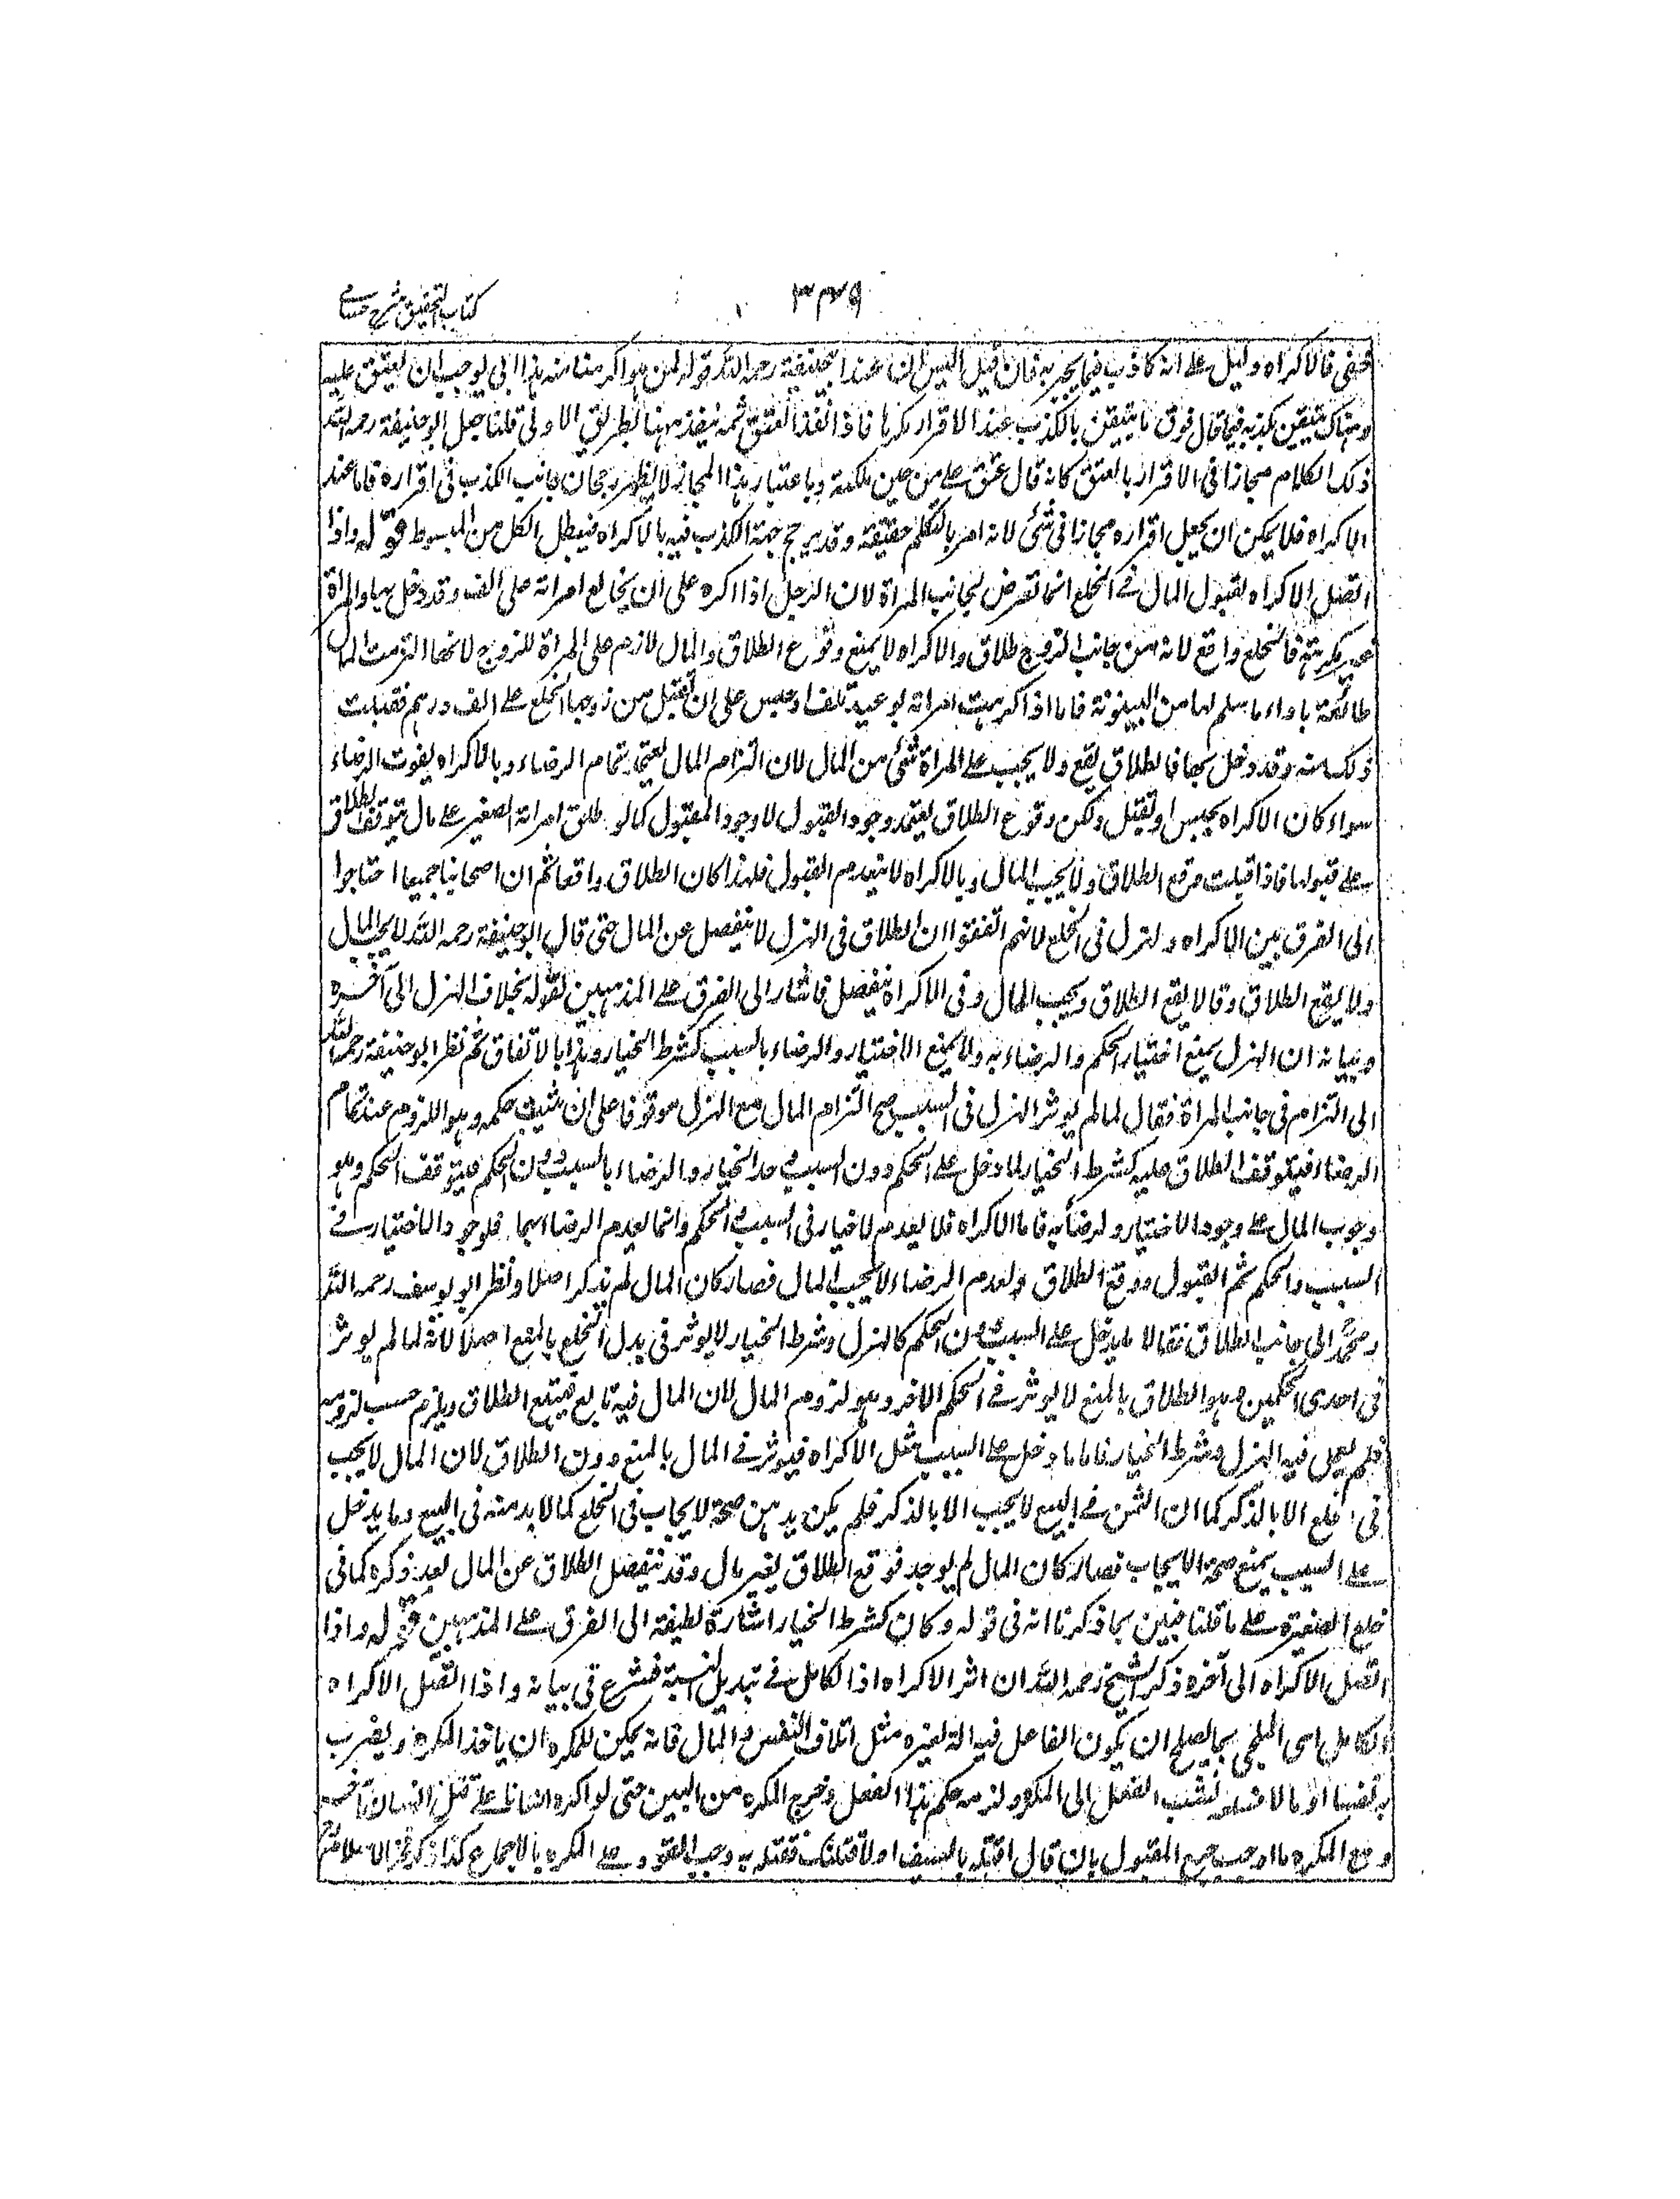 كتاب التحقيق شرح حسامى
٣٤٩
فالاكراه دليل على انه كاذب فيما يخبر به فان قيل اليس ان عند ابيحنيفة رحمه الله قوله لمن هو اكبر سنا منه هذا ابنى يوجب ان يعتق عليه
وهناك يتيقن بكذبه فيما قال فوق ما يتيقن بالكذب عند الاقرار مكرها فاذا نفذ العتق ثمه ينفذ ههنا بطريق الاولى قلنا جعل ابوحنيفة رحمه الله
ذلك الكلام مجازا فى الاقرار بالعتق كانه قال عتق على من حين ملكته وباعتبار هذا المجاز لا يظهر رجحان جانب الكذب فى اقراره فاما عند
الاكراه فلا يمكن ان يجعل اقراره مجازا فى شئ لانه امر بالتكلم حقيقة وقد يرجح جهة الكذب فيه بالاكراه فيبطل الكل من المبسوط قوله واذا
اتصل الاكراه بقبول المال فى الخلع انما تعرض لجانب المراة لان الرجل اذا اكره على ان يخالع امراته على الف وقد دخل بها والمراة
غير مكرهة فالخلع واقع لانه من جانب الزوج طلاق والاكراه لا يمنع وقوع الطلاق والمال لازم على المراة للزوج لانها التزمت المال
طائعة باداء ما سلم لها من البينونة فاما اذا اكرهت امراته بوعيد تلف او حبس على ان تقبل من زوجها الخلع على الف درهم فقبلت
ذلك منه وقد دخل بها فالطلاق يقع ولا يجب على المراة شئ من المال لان التزام المال يعتمد تمام الرضاء وبالاكراه يفوت الرضاء
سواء كان الاكراه بحبس او بقتل ولكن وقوع الطلاق يعتمد وجود القبول لا وجود المقبول كما لو طلق امراته الصغير على مال يتوقف الطلاق
على قبولها فاذا قبلت وقع الطلاق ولا يجب المال وبالاكراه لا ينعدم القبول فلهذا كان الطلاق واقعا ثم ان اصحابنا جميعا احتاجوا
الى الفرق بين الاكراه والهزل فى الخلع لانهم اتفقوا ان الطلاق فى الهزل لا ينفصل عن المال حتى قال ابوحنيفة رحمه الله لا يجب المال
ولا يقع الطلاق وقالا يقع الطلاق ويجب المال وفى الاكراه ينفصل فاشار الى الفرق على المذهبين بقوله بخلاف الهزل الى آخره
وبيانه ان الهزل يمنع اختيار الحكم والرضاء به ولا يمنع الاختيار والرضاء بالسبب كشرط الخيار وهذا بالاتفاق ثم نظر ابوحنيفة رحمه الله
الى التزام فى جانب المراة فقال لما لم يوثر الهزل فى السبب صح التزام المال مع الهزل موقوفا على ان يثبت حكمه وهو اللزوم عند تمام
الرضاء فيتوقف الطلاق عليه كشرط الخيار لما دخل على الحكم دون السبب وجد الخيار والرضاء بالسبب دون الحكم فيتوقف الحكم وهو
وجوب المال على وجود الاختيار والرضا به فاما الاكراه فلا يعدم الاختيار فى السبب والحكم وانما يعدم الرضا بهما فلوجود الاختيار فى
السبب والحكم ثم القبول ووقع الطلاق ولعدم الرضاء لا يجب المال فصار كان المال لم يذكر اصلا ونظر ابو يوسف رحمه الله
ومحمد الى جانب الطلاق فقالا ما يدخل على السبب دون الحكم كالهزل وشرط الخيار لا يوثر فى بدل الخلع بالمنع اصلا لانه لما لم يوثر
فى احدى الحكمين وهو الطلاق بالمنع لا يوثر فى الحكم الاخر وهو لزوم المال لان المال فيه تابع فيتبع الطلاق ويلزم حسب لزومه
فلم يعمل فيه الهزل وشرط الخيار فاما ما دخل على السبب مثل الاكراه فيوثر فى المال بالمنع دون الطلاق لان المال لا يجب
فى الخلع الا بالذكر كما ان الثمن فى البيع لا يجب الا بالذكر فلم يكن بد من صحة الايجاب فى الخلع كما لا بد منه فى البيع وما يدخل
على السبب يمنع صحة الايجاب فصار كان المال لم يوجد فوقع الطلاق بغير مال وقد ينفصل الطلاق عن المال بعد ذكره كما فى
خلع الصغيرة على ما قلنا فبين بما ذكرنا انه فى قوله وكان كشرط الخيار اشارة لطيفة الى الفرق على المذهبين قوله واذا
اتصل الاكراه الى آخره ذكر الشيخ رحمه الله ان اثر الاكراه اذا تكامل فى تبديل النسبة فشرع فى بيانه واذا اتصل الاكراه
الكامل اى الملجى بما يصلح ان يكون الفاعل فيه آلة لغيره مثل اتلاف النفس والمال فانه يمكن للمكره ان ياخذ المكره ويضرب
به نفسا او مالا فيتلفه نسب الفعل الى المكره ولزمه حكم هذا الفعل وخرج المكره من البين حتى لو اكره انسانا على قتل انسان
المكره بان قال اقتله بالسيف او لاقتلنك فقتله به وجب القود على المكره بالاجماع كذا ذكر